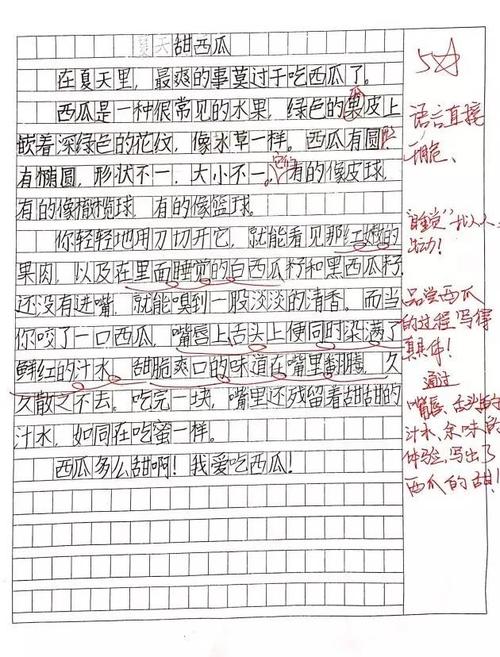 夏天甜西瓜
在夏天里，最爽的事莫过于吃西瓜了。
西瓜是一种很常见的水果，绿色的果皮上
嵌着深绿色的花纹，像水草一样。西瓜有圆
有椭圆，形状不一，大小不一。它们有的像皮球，
有的像橄榄球，有的像篮球。
你轻轻地用刀切开它，就能看见那红嫩的
果肉，以及在里面睡觉的白西瓜籽和黑西瓜籽，
还没有进嘴，就能嗅到一股淡淡的清香。而当
你咬了一口西瓜，嘴唇上舌头上便同时染满了
鲜红的汁水，甜脆爽口的味道在嘴里翻腾，久
久散之不去。吃完一块，嘴里还残留着甜甜的
汁水，如同在吃蜜一样。
西瓜多么甜啊！我爱吃西瓜！
5☆
语言直接
“睡觉”拟人
生动！
品尝西瓜
的过程写得
真具体！
通过
嘴唇、舌头的
汁水、余味的
体验，写出了
西瓜的甜！